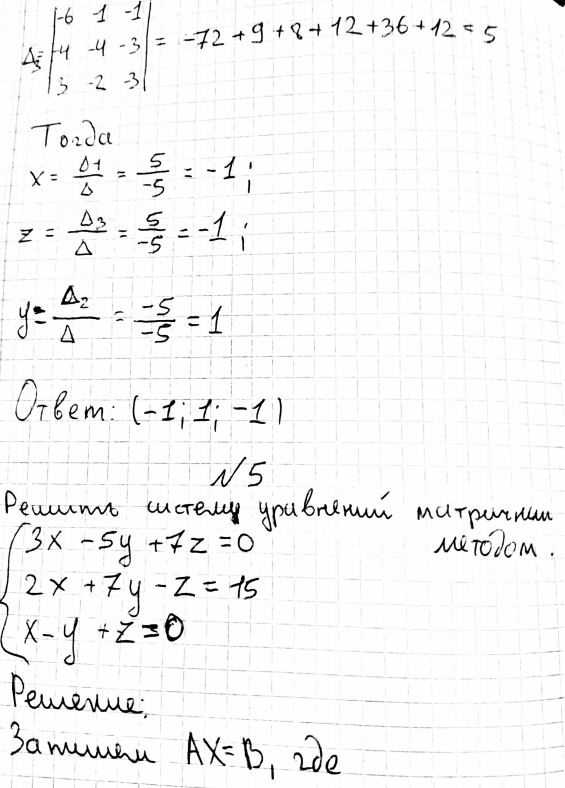 Δ₃= | -6 1 -1 |
| -4 -4 -3 | = -72+9+8+12+36+12=5
| 3 -2 -3 |
Тогда
x = Δ1/Δ = 5/-5 = -1;
z = Δ₃/Δ = 5/-5 = -1;
y = Δ₂/Δ = -5/-5 = 1
Ответ: (-1; 1; -1)
№5
Решить систему уравнений матричным
методом.
3x - 5y + 7z = 0
2x + 7y - z = 15
x - y + z = 0
Решение:
Запишем AX=B, где